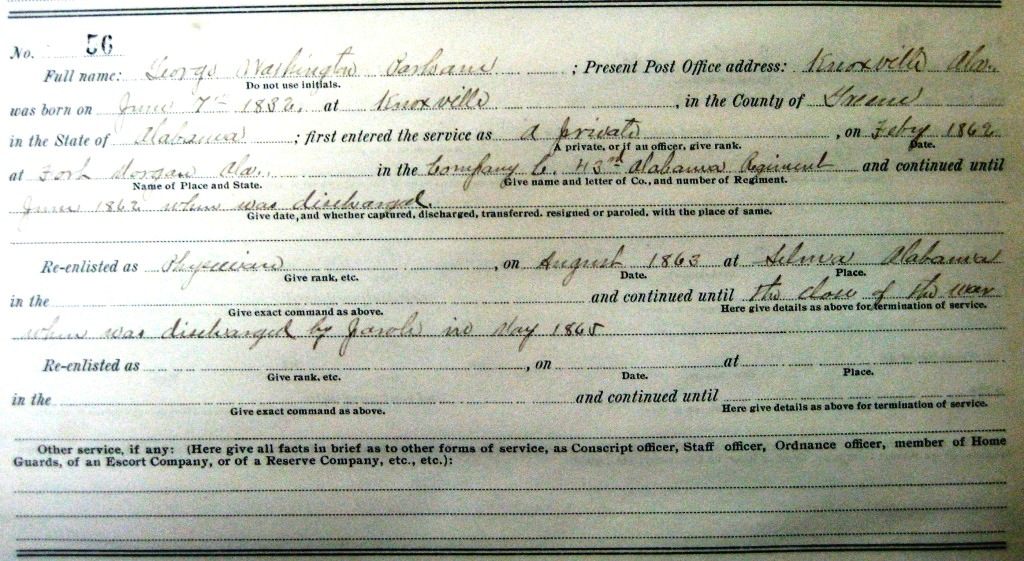 No. 56
Full name: George Washington Parham ; Present Post Office address: Knoxville Ala.
Do not use initials.
was born on June 7th 1832, at Knoxville , in the County of Greene
in the State of Alabama ; first entered the service as A private , on Feby 1862
A private, or if an officer, give rank. Date.
at Fort Morgan Ala. in the Company C. 43rd Alabama Regiment and continued until
Name of Place and State. Give name and letter of Co., and number of Regiment.
June 1862 when was discharged.
Give date, and whether captured, discharged, transferred. resigned or paroled, with the place of same.
Re-enlisted as Physician , on August 1863 at Selma Alabama
Give rank, etc. Date. Place.
in the and continued until the close of the war
Give exact command as above. Here give details as above for termination of service.
when was discharged by Parole in May 1865
Re-enlisted as , on at
Give rank, etc. Date. Place.
in the and continued until
Give exact command as above. Here give details as above for termination of service.
Other service, if any: (Here give all facts in brief as to other forms of service, as Conscript officer, Staff officer, Ordnance officer, member of Home
Guards, of an Escort Company, or of a Reserve Company, etc., etc.):